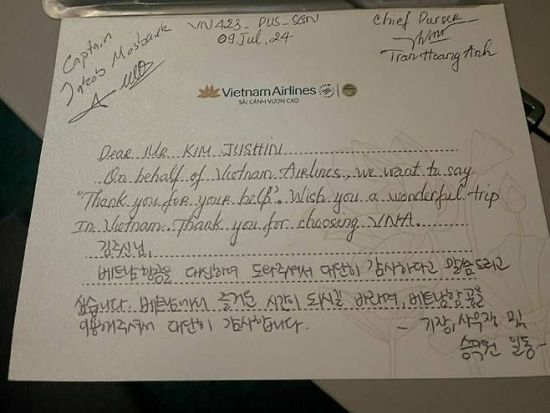 Captain
Jakob Mosbaek
VN423_ PUS_SGN
09 Jul, 24
Chief Purser
Tran Hoang Anh
Vietnam Airlines
SẢI CÁNH VƯƠN CAO
Dear Mr KIM JUSHIN
On behalf of Vietnam Airlines, we want to say
"Thank you for your help". Wish you a wonderful trip
In Vietnam. Thank you for choosing VNA.
김주신님,
베트남항공을 대신하여 도와주셔서 대단히 감사하다고 말씀드리고
싶습니다. 베트남에서 즐거운 시간이 되시길 바라며, 베트남항공을
이용해주셔서 대단히 감사합니다.
- 기장, 사무장 및
승무원 일동 -